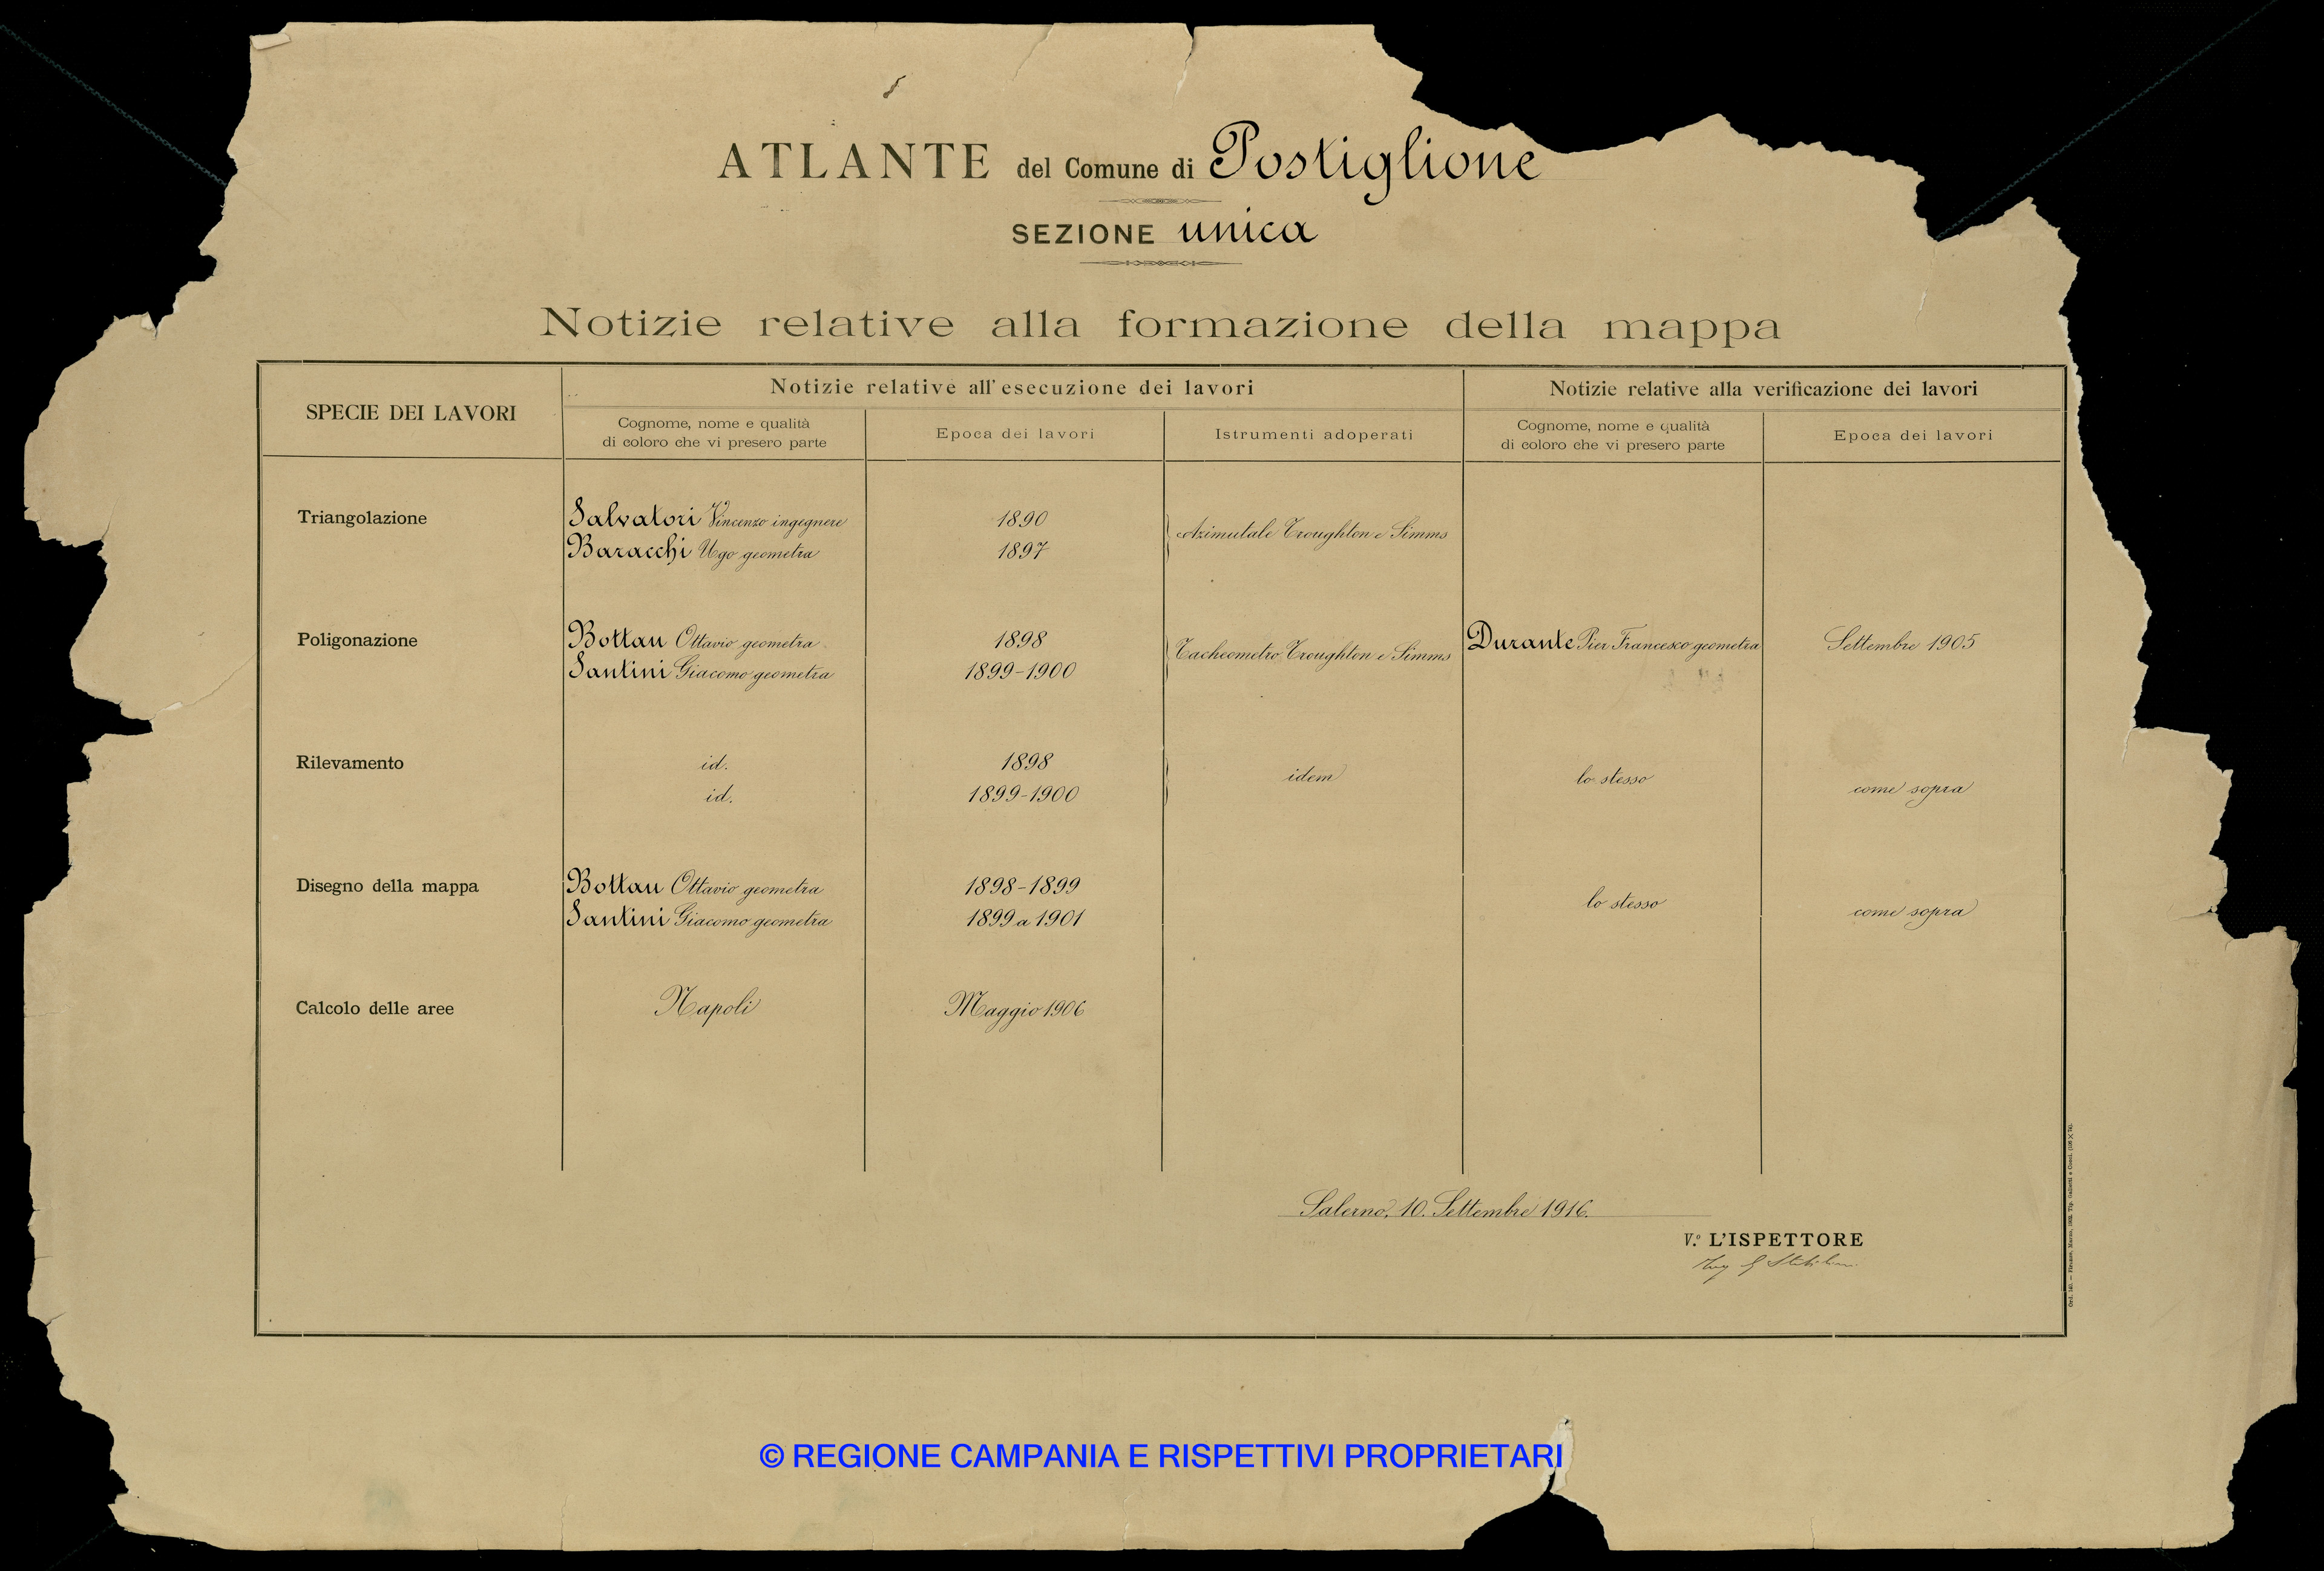 ATLANTE del Comune di Postiglione
SEZIONE unica
Notizie relative alla formazione della mappa
SPECIE DEI LAVORI
Notizie relative all'esecuzione dei lavori
Notizie relative alla verificazione dei lavori
Cognome, nome e qualità
di coloro che vi presero parte
Epoca dei lavori
Istrumenti adoperati
Cognome, nome e qualità
di coloro che vi presero parte
Epoca dei lavori
Triangolazione
Salvatori Vincenzo ingegnere
Baracchi Ugo geometra
1890
1897
Azimutale Troughton e Simms
Poligonazione
Bottau Ottavio geometra
Santini Giacomo geometra
1898
1899-1900
Tacheometro Troughton e Simms
Durante Pier Francesco geometra
Settembre 1905
Rilevamento
id.
id.
1898
1899-1900
idem
lo stesso
come sopra
Disegno della mappa
Bottau Ottavio geometra
Santini Giacomo geometra
1898-1899
1899 a 1901
lo stesso
come sopra
Calcolo delle aree
Napoli
Maggio 1906
Salerno, 10. Settembre 1916.
V.º L'ISPETTORE
© REGIONE CAMPANIA E RISPETTIVI PROPRIETARI